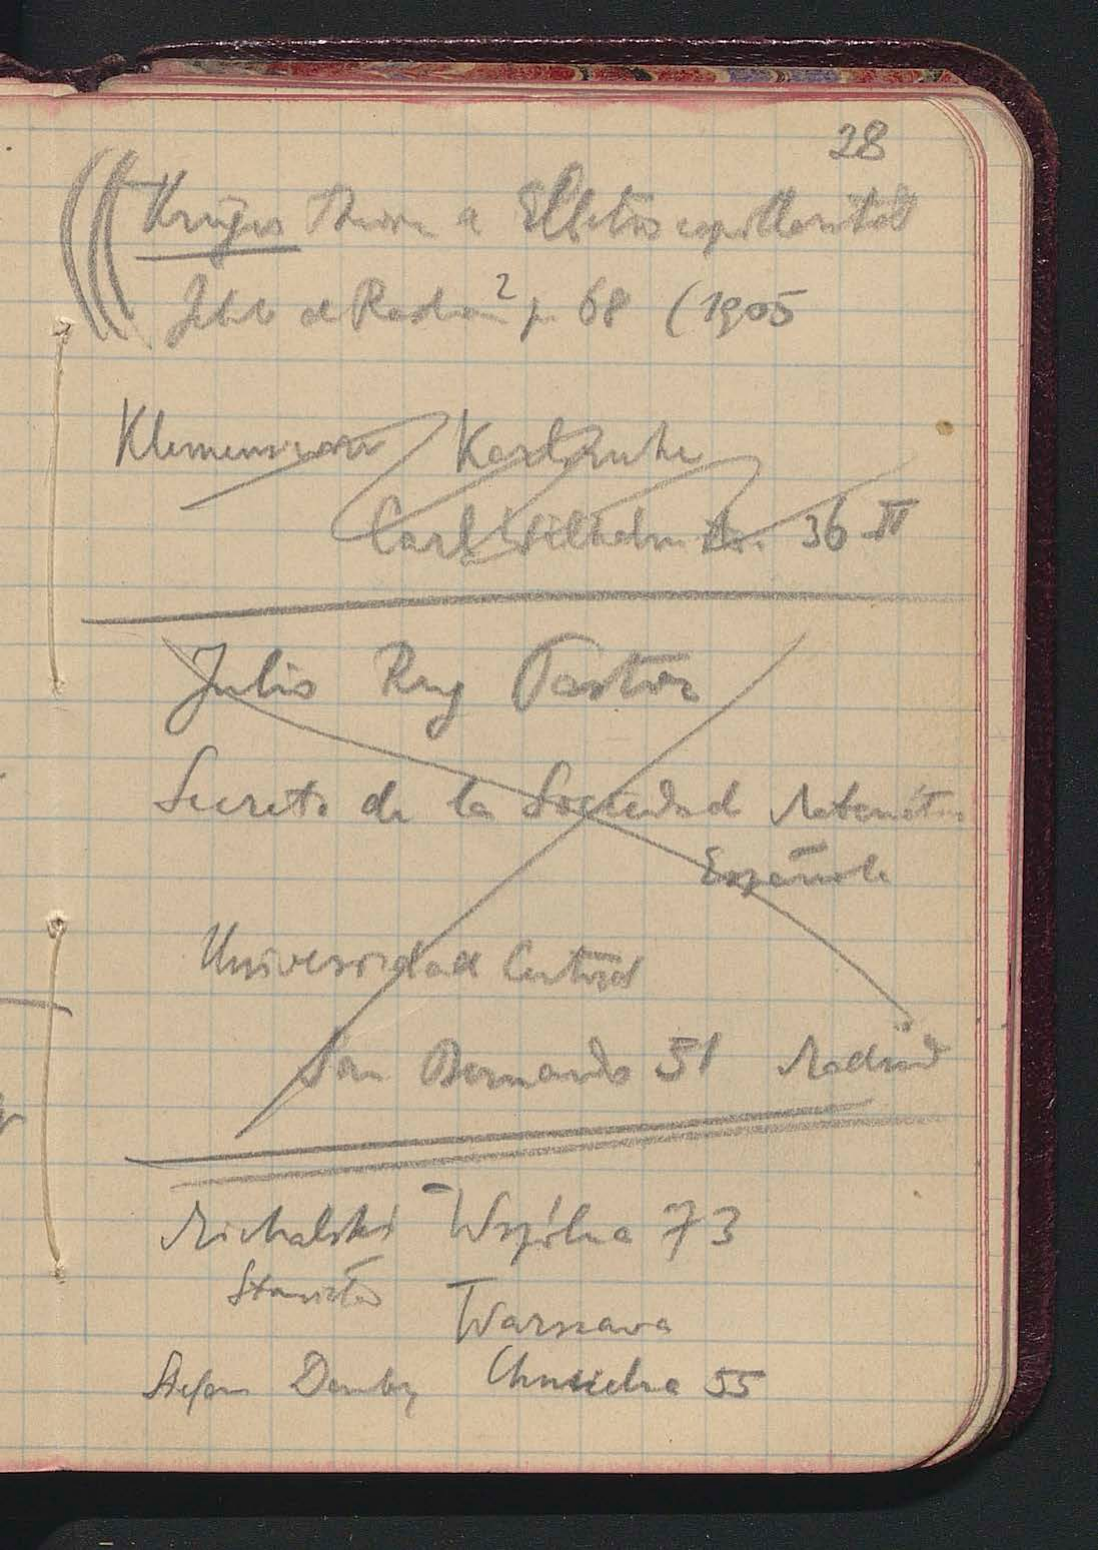 28
Krüger Theorie d Elektrocapillarität
Jhb d Radm 2 p 68 (1905
Klemensiewicz Karlsruhe
Carl Wilhelm Str. 36 II
Julio Rey Pastor
Secreto de la Sociedad Matemática
Española
Universidad Central
San Bernardo 51 Madrid
Michalski Wspólna 73
Stanisław
Warszawa
Stefan Demby Chmielna 55